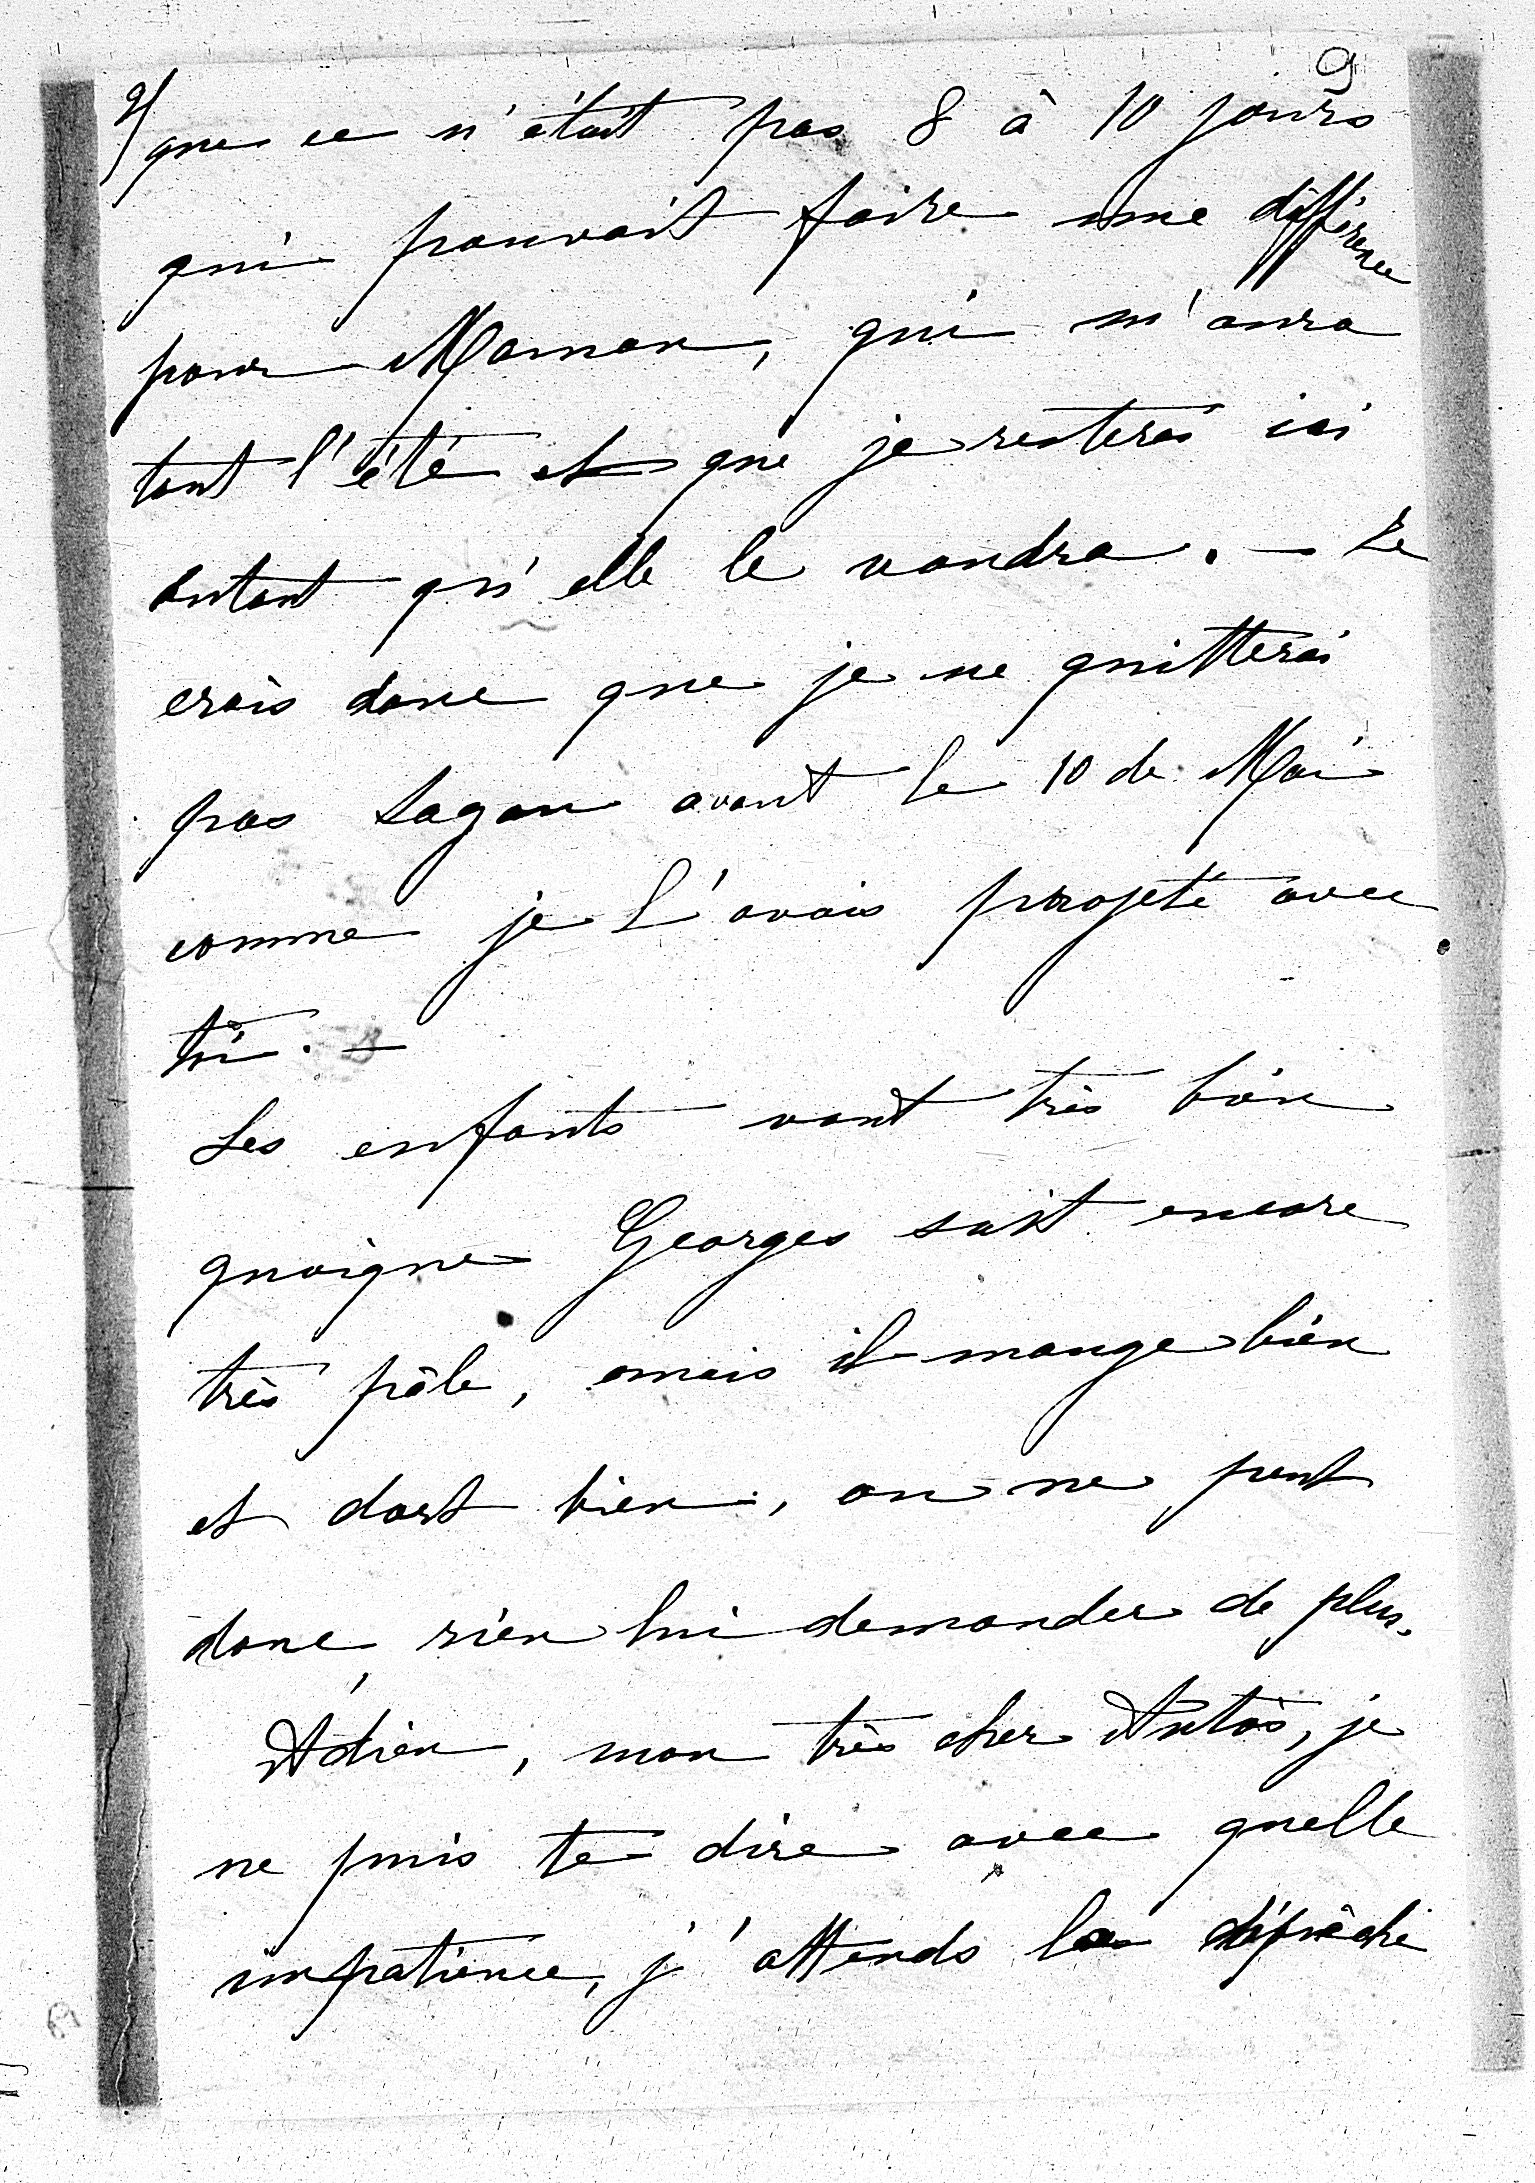 9
2/
que ce n'était pas 8 à 10 jours
qui pouvait faire une différence
pour Maman, qui m'aura
tout l'été et que je resterai ici
autant qu'elle le voudra. — Je
crois donc que je ne quitterai
pas Sagan avant le 10 de Mai
comme je l'avais projeté avec
toi. —
Les enfants vont très bien
quoique Georges soit encore
très pâle, mais il mange bien
et dort bien, on ne peut
donc rien lui demander de plus.
Adieu, mon très cher Antoś, je
ne puis te dire avec quelle
impatience, j'attends la dépêche